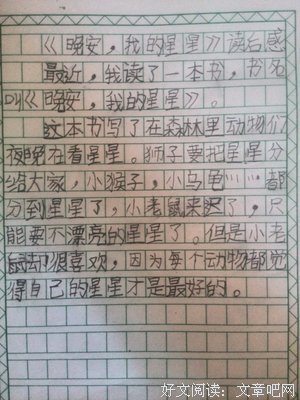 《晚安，我的星星》读后感
最近，我读了一本书，书名
叫《晚安，我的星星》。
这本书写了在森林里动物们
夜晚在看星星。狮子要把星星分
给大家，小猴子，小乌龟……都
分到星星了，小老鼠来迟了，只
能要不漂亮的星星了。但是小老
鼠却很喜欢，因为每个动物都觉
得自己的星星才是最好的。
好文阅读：文章吧网